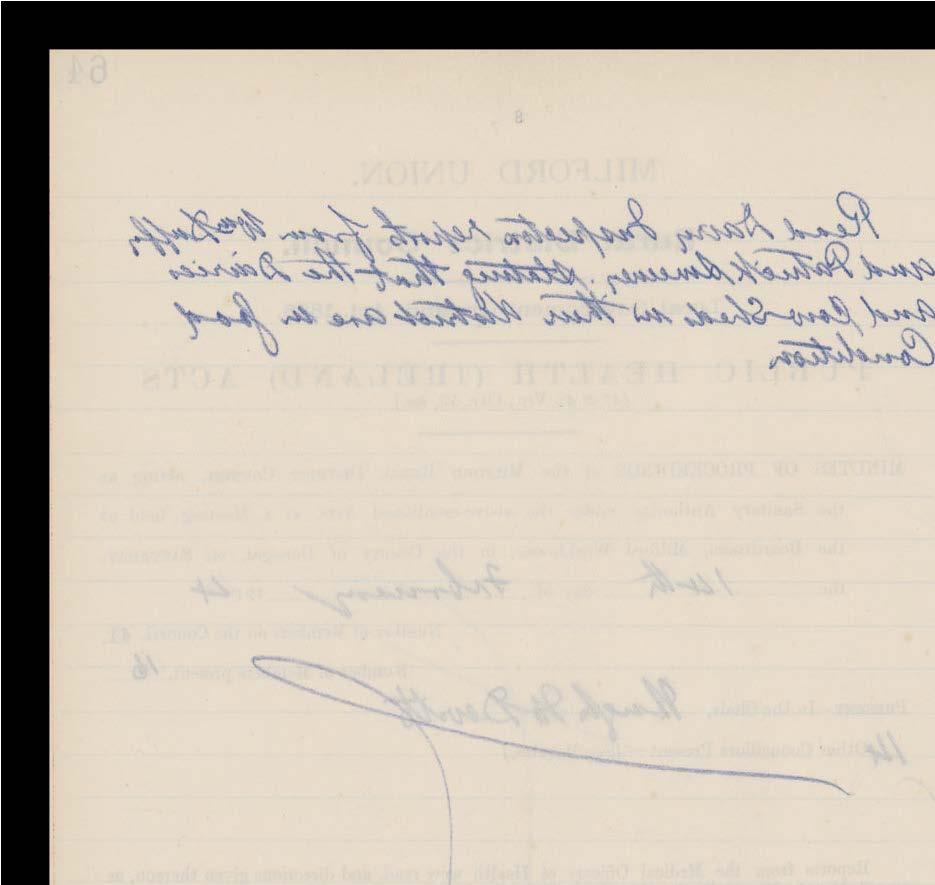 64
8
MILFORD UNION.
Rural District Council.
Read Dairy Inspectors reports from Wm Duffy,
and Patrick Sweeney, stating that the Dairies
and Cow Sheds in their district are in good
Condition
PUBLIC HEALTH (IRELAND) ACTS
MINUTES OF PROCEEDINGS of the Milford Rural District Council, acting as
the Sanitary Authority under the above-mentioned Acts at a Meeting held at
the Boardroom, Milford Workhouse, in the County of Donegal, on Saturday,
the 14th day of February 1914
Number of Members on the Council, 41.
Number of Members present, 16
Present: In the Chair, Hugh McDevitt
14 Other Councillors Present
Reports from the Medical Officers of Health were read, and directions given thereon, as